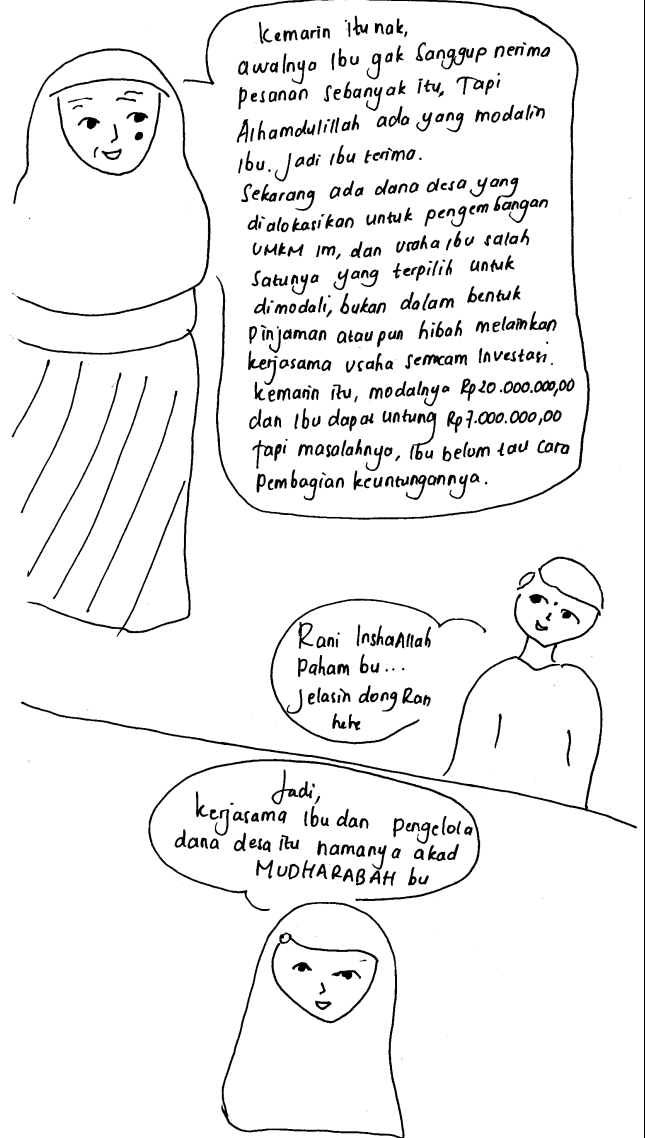 Kemarin itu nak,
awalnya Ibu gak sanggup nerima
pesanan sebanyak itu, Tapi
Alhamdulillah ada yang modalin
Ibu. Jadi ibu terima.
Sekarang ada dana desa yang
dialokasikan untuk pengembangan
UMKM lm, dan usaha ibu salah
satunya yang terpilih untuk
dimodali, bukan dalam bentuk
pinjaman ataupun hibah melainkan
kerjasama usaha semcam Investasi.
kemarin itu, modalnya Rp20.000.000,00
dan Ibu dapat untung Rp7.000.000,00
tapi masalahnya, Ibu belum tau cara
pembagian keuntungannya.
Rani InshaAllah
paham bu...
Jelasin dong Ran
hehe
Jadi,
kerjasama Ibu dan pengelola
dana desa itu namanya akad
MUDHARABAH bu